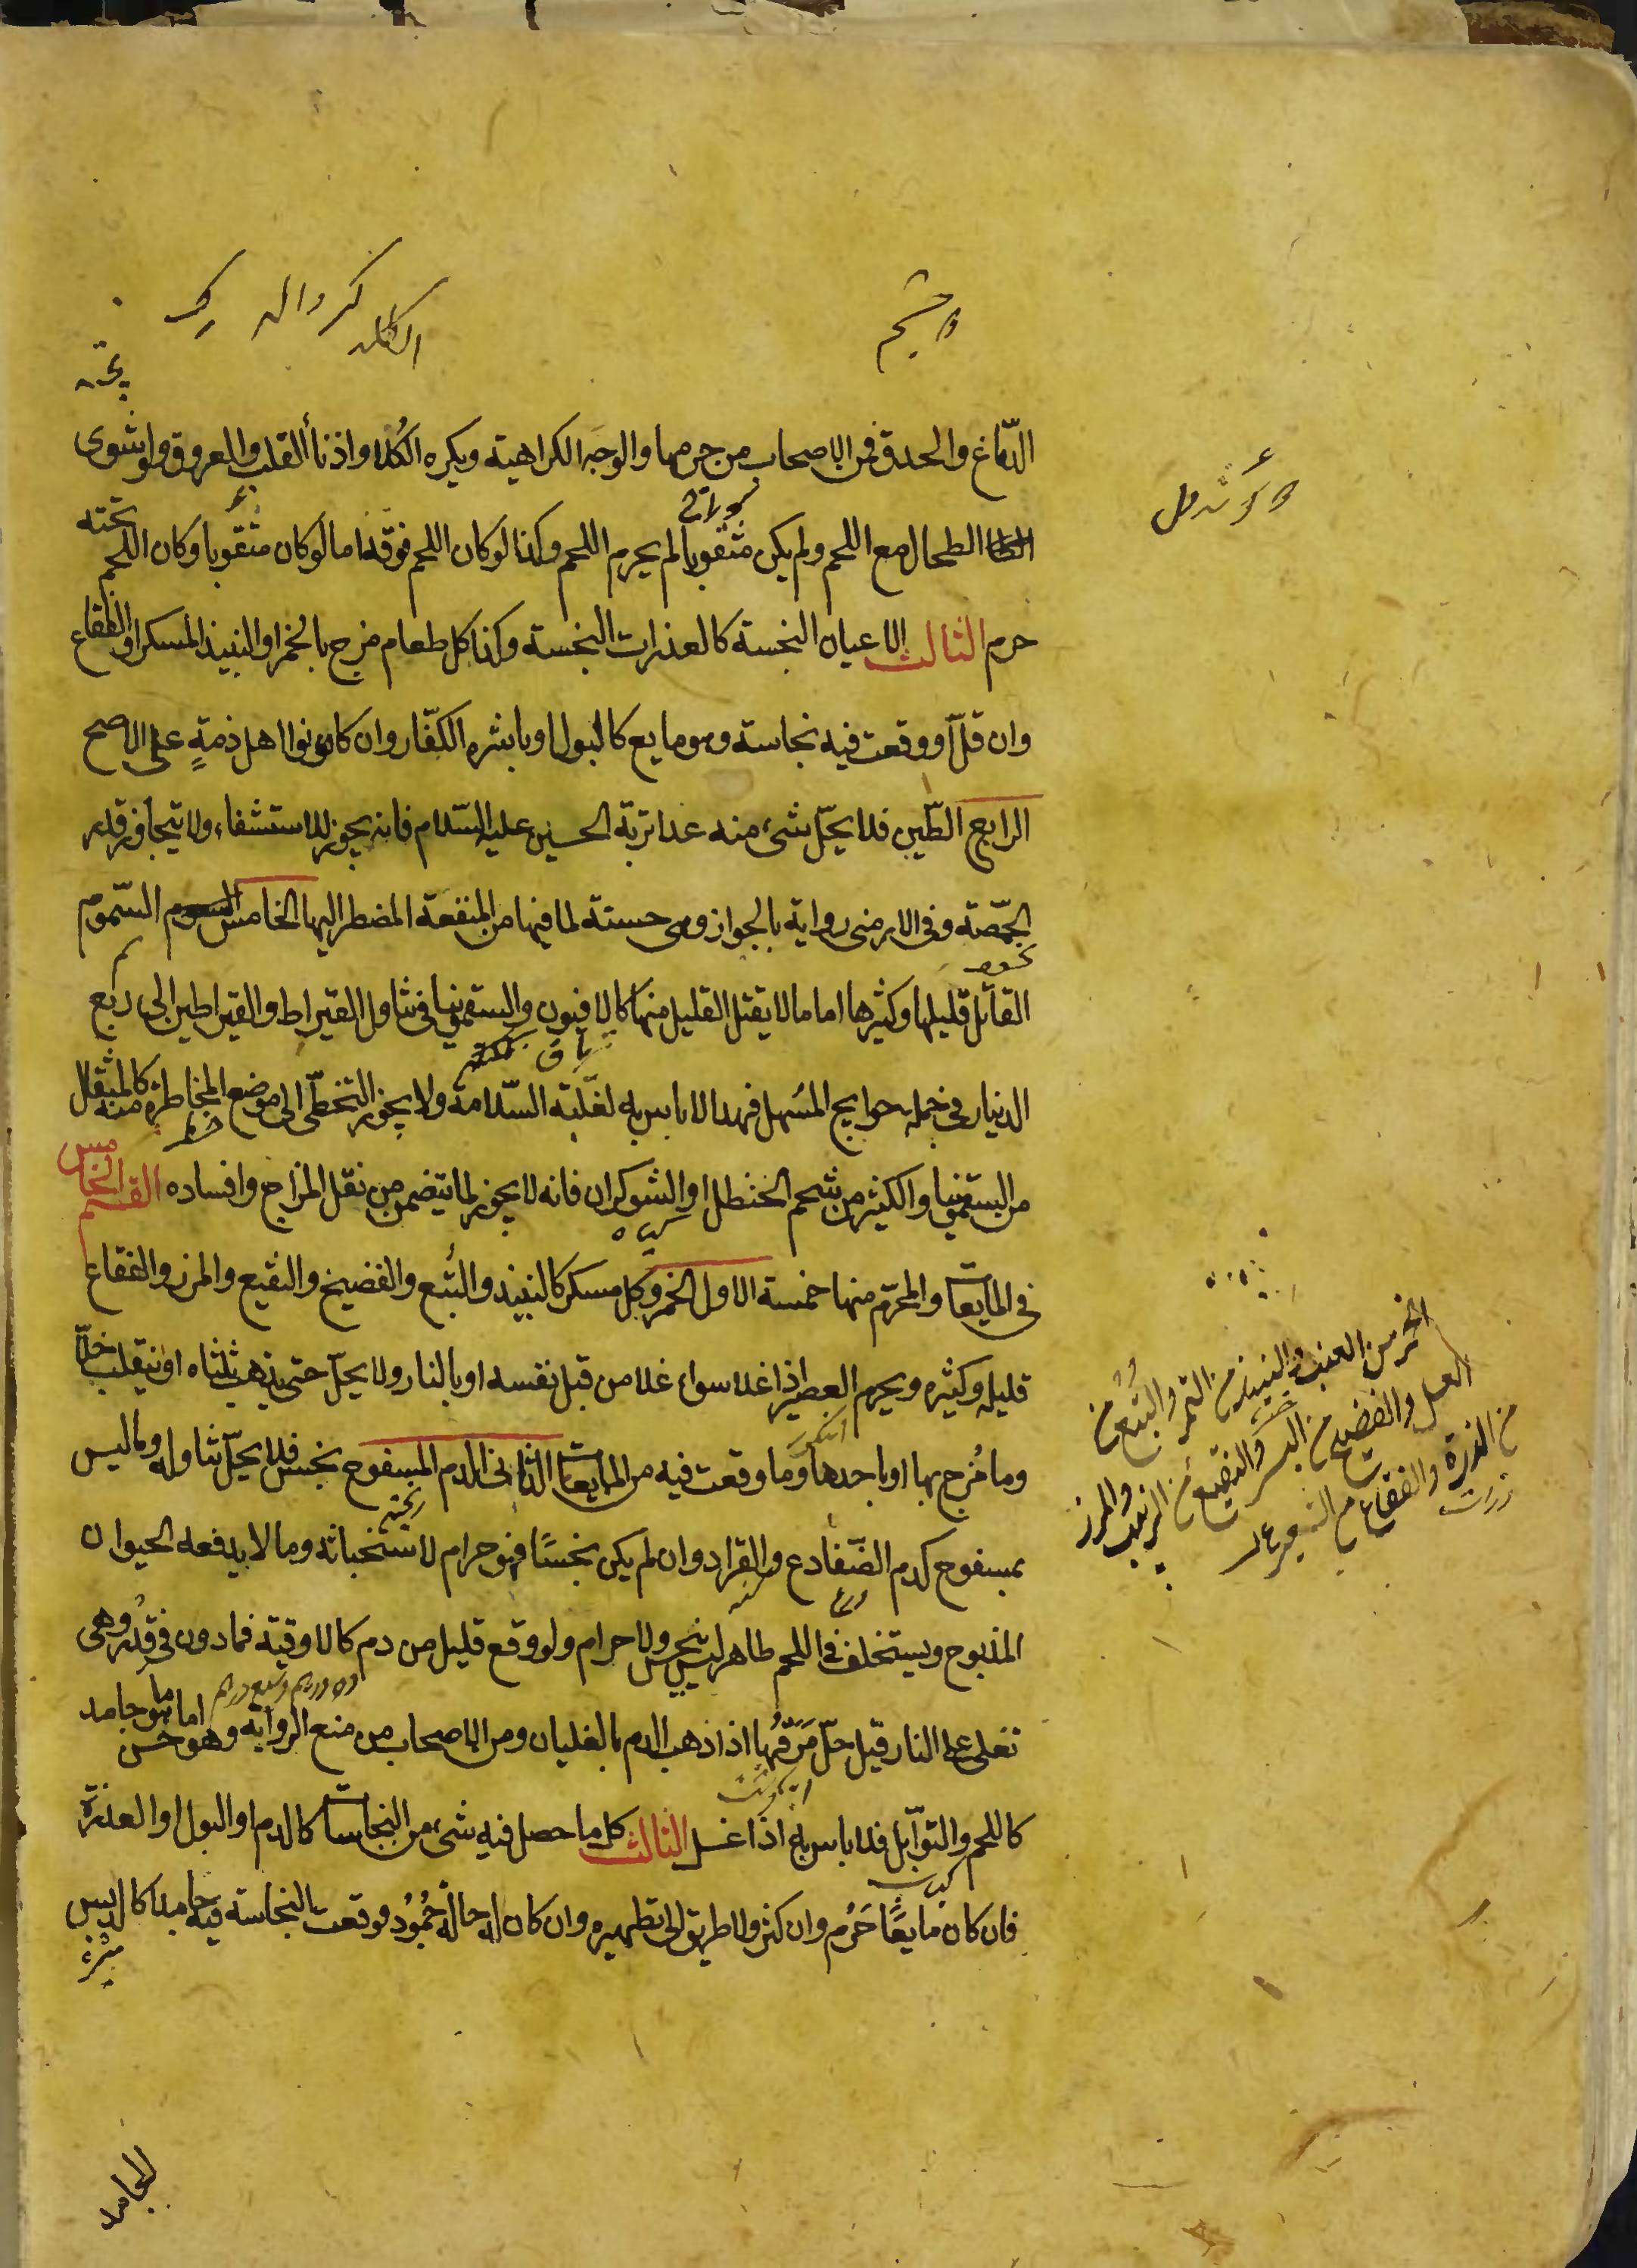 الدّماغ والحدق فمن الاصحاب من حرمها والوجه الكراهية ويكره الكُلا واذنا القلب والعروق ولو شوى
الطحال مع اللحم ولم يكن مثقوبا لم يحرم اللحم وكذا لو كان اللحم فوقه اما لو كان مثقوبا وكان اللحم تحته
حرم الثالث الاعيان النجسة كالعذرات النجسة وكذا كل طعام مزج بالخمر او النبيذ المسكر او الفقاع
وان قلّ او وقعت فيه نجاسة وهو مايع كالبول او باشره الكفّار وان كانوا اهل ذمةٍ على الاصح
الرابع الطّين فلا يحلّ شىء منه عدا تربة الحسين عليه السّلام فانه يجوز للاستشفاء ولا يتجاوز قدر
الحمّصة وفى الارمنى رواية بالجواز وهى حسنة لما فيها من المنفعة المضطر اليها الخامس السّموم
القاتل قليلها وكثيرها اما ما لا يقتل القليل منها كالافيون والسقمونيا فى تناول القيراط والقيراطين الى ربع
الدنيار فى جمله حوايج المسهل فهذا لا باس به لغلبة السّلامة ولا يجوز التخطّى الى موضع المخاطرة منه كالمثقال
من السقمونيا والكثير من شحم الحنظل او الشوكران فانه لا يجوز لما يتضمن من نقل المزاج وافساده القسم الخامس
فى المايعات والمحرّم منها خمسة الاول الخمر وكل مسكر كالنبيذ والبتع والفضيخ والنقيع والمزر والفقاع
قليله وكثيره ويحرم العصير اذا غلا سواء غلا من قبل نفسه او بالنار ولا يحلّ حتى يذهب ثلثاه او ينقلب خلّا
وما مُزج بها او باحدها وما وقعت فيه من المايعات الثانى الدم المسفوح نجس فلا يحلّ تناوله وما ليس
بمسفوح كدم الضّفادع والقراد وان لم يكن نجسًا فهو حرام لاستخباثه وما لا يدفعه الحيوان
المذبوح ويستخلف فى اللحم طاهر ليس بنجس ولا حرام ولو وقع قليل من دم كالاوقية فما دون فى قدر وهى
تغلى على النار قيل حلّ مَرَقُها اذا ذهب الدم بالغليان ومن الاصحاب من منع الرواية وهو حسن اما ما هو جامد
كاللحم والتوابل فلا باس به اذا غسل الثالث كل ما حصل فيه شىء من النجاسات كالدم او البول او العذرة
فان كان مايعًا حَرُم وان كثر ولا طريق الى تطهيره وان كان له حالة جُمُود فوقعت النجاسة فيه جامدا كالدبس
الخمر من العنب والنبيذ من التمر والبتع من
العسل والفضيخ من البسر والنقيع من الزبيب والمزر
من الذرة والفقاع من الشعير
الجامد